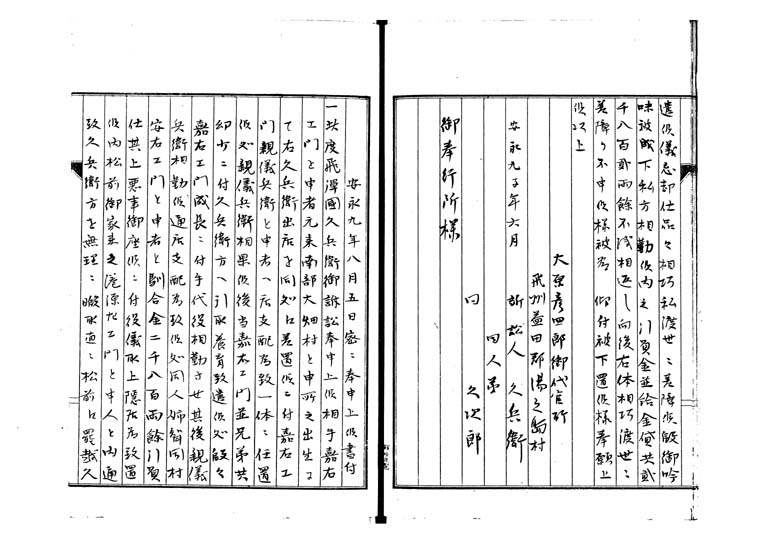 遣候儀忘却仕品々相巧私渡世ニ差障候段御吟
味被成下私方相勤候内之引負金並給金貸共弐
千八百弐両余不残相返し向後右体相巧渡世ニ
差障り不申候様被為 仰付被下置候様奉願上
候以上
大原彦四郎御代官所
飛州益田郡湯之嶋村
安永九子年六月 訴訟人 久兵衛
同人弟
同 久次郎
御奉行所様
安永九年八月五日密ニ奉申上候書付
一此度飛騨国久兵衛御訴訟奉申上候相手嘉右
エ門と申者元来南部大畑村と申所之出生ニ
て右久兵衛出店を同処に差置候ニ付嘉右エ
門親儀兵衛と申者へ店支配為致一体ニ任置
候処親儀兵衛相果候後当嘉右エ門並兄弟共
幼少ニ付久兵衛方へ引取養育致遣候処段々
嘉右エ門成長ニ付手代役相勤させ其後親儀
兵衛相勤候通店支配為致候処同人姉聟同村
安右エ門と申者と馴合金二千八百両余引負
仕其上悪事御座候ニ付役儀取上隠居為致置
候内松前御家来之 エ門と申人と内通
致久兵衛方を無理ニ暇取直ニ松前に罷越久